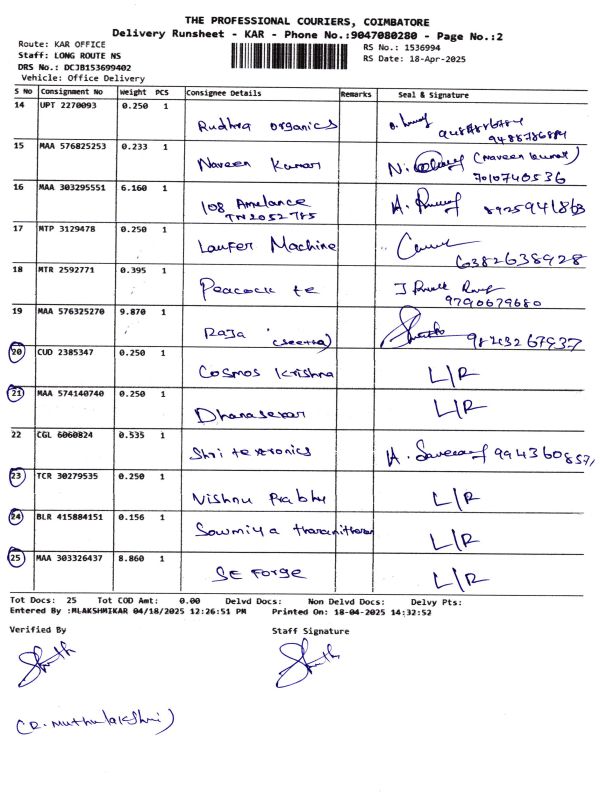 THE PROFESSIONAL COURIERS, COIMBATORE
Delivery Runsheet - KAR - Phone No.:9047080280 - Page No.:2
Route: KAR OFFICE
RS No.: 1536994
Staff: LONG ROUTE NS
RS Date: 18-Apr-2025
DRS No.: DCJB153699402
Vehicle: Office Delivery
S No Consignment No Weight PCS Consignee Details Remarks Seal & Signature
14 UPT 2270093 0.250 1 Rudhra organics
9488786884
15 MAA 576825253 0.233 1 Naveen Kumar N. (Naveen Kumar)
7010740536
16 MAA 303295551 6.160 1 108 Amelance
TN2052785
17 MTP 3129478 0.250 1 Laufer Machine
6382638928
18 MTR 2592771 0.395 1 Peacock te
9790679680
19 MAA 576325270 9.870 1 Raja
20 CUD 2385347 0.250 1 Cosmos Krishna L/R
21 MAA 574140740 0.250 1 Dhanasekar L/R
22 CGL 6060824 0.535 1 Shri textronics
23 TCR 30279535 0.250 1 Vishnu Prabhu L/R
24 BLR 415884151 0.156 1 Sowmiya tharanitharan L/R
25 MAA 303326437 8.860 1 SE Forge L/R
Tot Docs: 25 Tot COD Amt: 0.00 Delvd Docs: Non Delvd Docs: Delvy Pts:
Entered By :MLAKSHMIKAR 04/18/2025 12:26:51 PM Printed On: 18-04-2025 14:32:52
Verified By
Staff Signature
(R. Muthulakshmi)